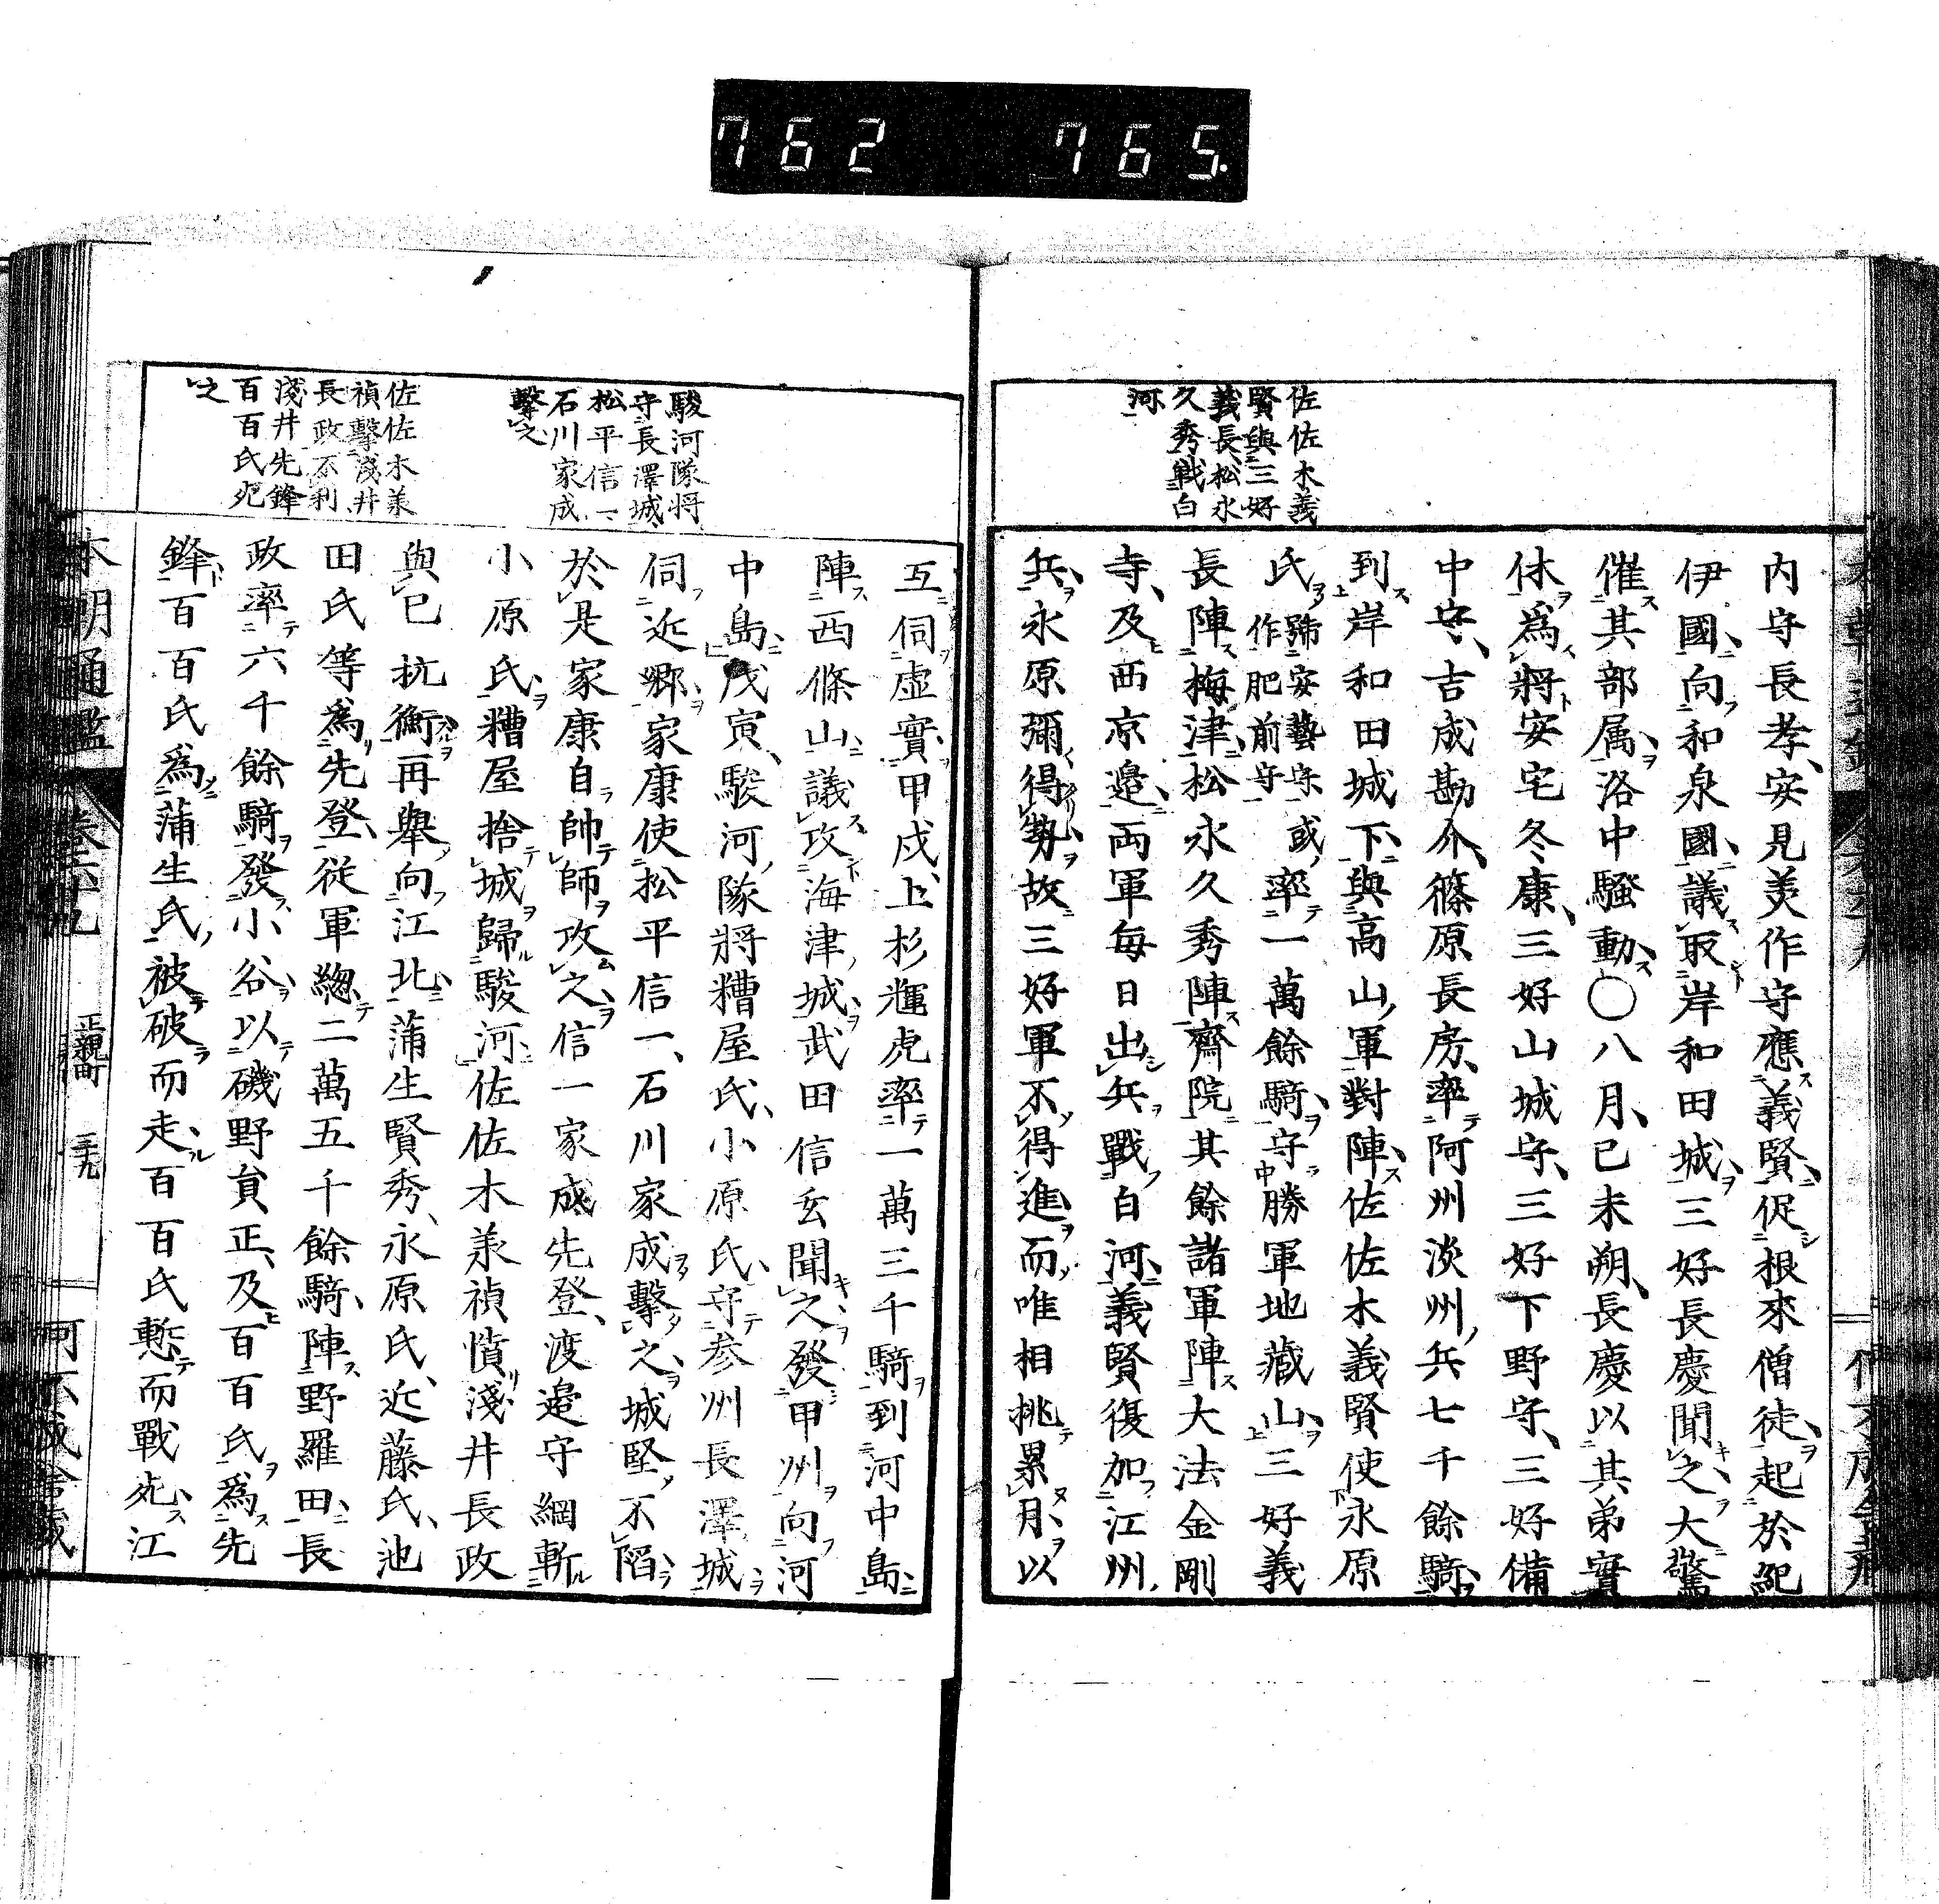 762 765.
佐佐木義
賢與三好
義長松永
久秀戰白
河
内守長孝、安見美作守應義賢、促根來僧徒、起於紀
伊國、向和泉國、議取岸和田城、三好長慶聞之大驚
催其部属、洛中騒動、〇八月、己未朔、長慶以其弟實
休爲將、安宅冬康、三好山城守、三好下野守、三好備
中守、吉成勘介、篠原長房、率阿州淡州兵七千餘騎、
到岸和田城下、與高山軍對陣、佐佐木義賢使永原
氏號安藝守或作肥前守率一萬餘騎、守勝軍地藏山、三好義
長陣梅津、松永久秀陣齊院、其餘諸軍陣大法金剛
寺、及西京邉、両軍毎日出兵戰白河、義賢復加江州
兵、永原彌得勢、故三好軍不得進、而唯相挑累月、以
駿河隊將
守長澤城
松平信一
石川家成
擊之
佐佐木義
禎擊淺井
長政不利
淺井先鋒
百百氏死
之
互伺虚實、甲戌、上杉輝虎率一萬三千騎到河中島、
陣西條山、議攻海津城、武田信玄聞之、發甲州向河
中島、戊寅、駿河隊將糟屋氏、小原氏、守參州長澤城、
伺近郷、家康使松平信一、石川家成擊之、城堅不陷、
於是家康自帥師攻之、信一家成先登、渡邉守綱斬
小原氏、糟屋捨城歸駿河、佐佐木義禎憤淺井長政
與已抗衡、再舉向江北、蒲生賢秀、永原氏、近藤氏、池
田氏等爲先登、從軍總二萬五千餘騎、陣野羅田、長
政率六千餘騎發小谷、以磯野員正、及百百氏爲先
鋒、百百氏爲蒲生氏被破而走、百百氏慙而戰死、江
本朝通鑑 卷六十九 正親町 三十九